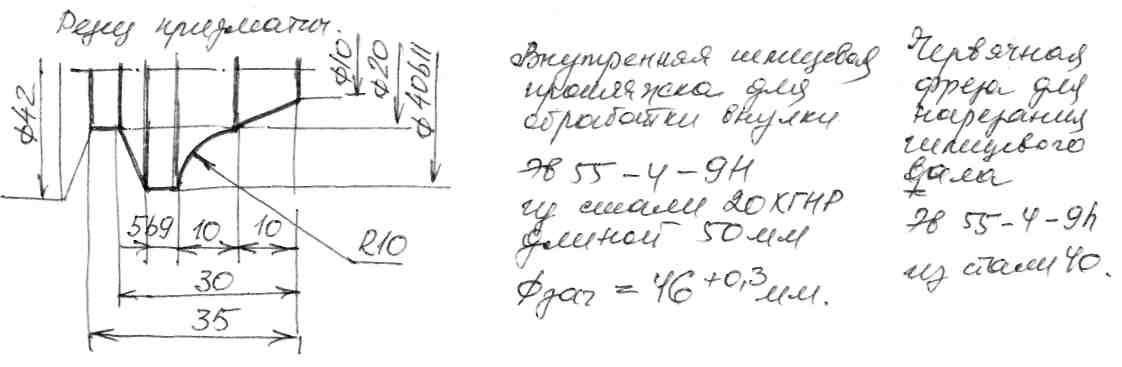 Резец призматич.
ϕ42
ϕ10
ϕ20
ϕ40b11
5b9
10
10
R10
30
35
Внутренняя шлицевая
протяжка для
обработки втулки
Эв 55-4-9H
из стали 20ХГНР
длиной 50 мм
ϕзаг = 46 +0,3 мм.
Червячная
фреза для
нарезания
шлицевого
вала
Эв 55-4-9h
из стали 40.